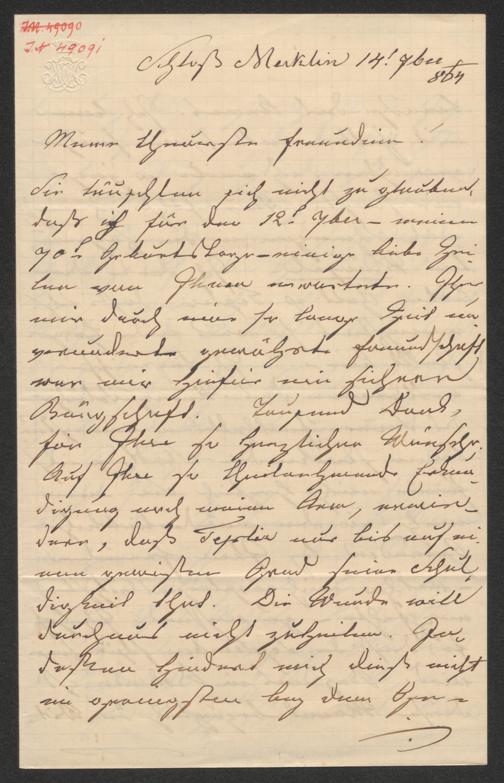 I.N. 49090
I.N 49091
Schloß Merklin 14t 7ber
864
Meine theuerste Freundinn!
Sie täuschten sich nicht zu glauben,
daß ich für den 12t 7ber – meinen
70t Geburtstage – einige liebe Zei-
len von Ihnen erwartete. Ihre
mir durch eine so lange Zeit un
verändert gewährte Freundschaft
war mir hiefür ein sicherer
Bürgschaft. Tausend Dank,
für Ihre so herzlichen Wünsche.
Auf Ihre so theilnehmende Erkun
digung nach meinem Arm, erwie-
dere, daß Teplitz nur bis auf ei-
nen gewissen Grad seine Schul
digkeit that. Die Wunde will
durchaus nicht zuheilen. In-
dessen hindert mich dieß nicht
im geringsten bey dem